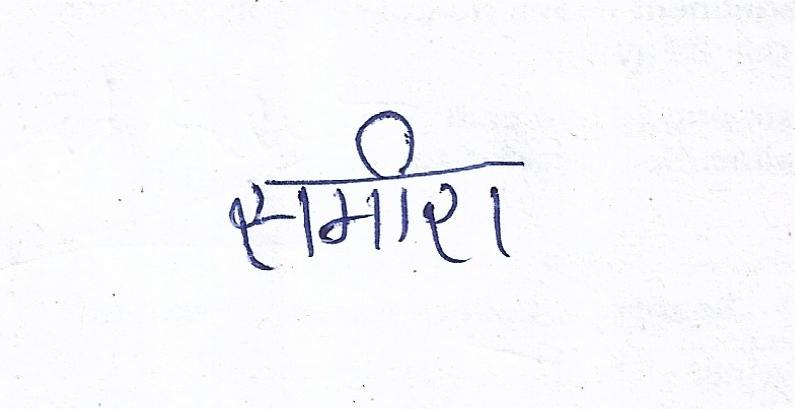 समीरा